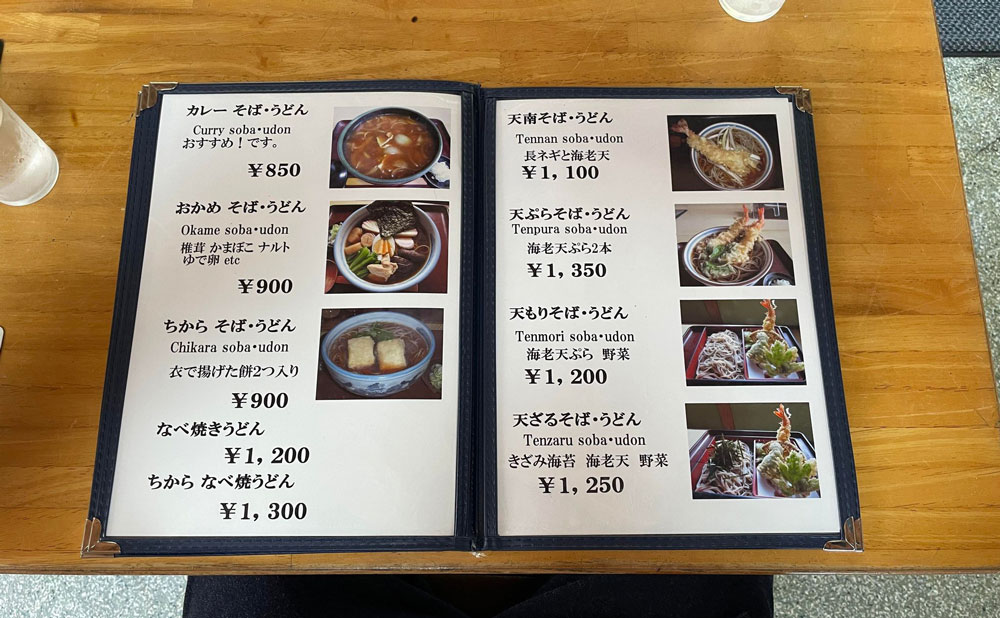 カレー そば・うどん
Curry soba・udon
おすすめ！です。
￥850
おかめ そば・うどん
Okame soba・udon
椎茸 かまぼこ ナルト
ゆで卵 etc
￥900
ちから そば・うどん
Chikara soba・udon
衣で揚げた餅2つ入り
￥900
なべ焼きうどん
￥1, 200
ちから なべ焼うどん
￥1, 300
天南そば・うどん
Tennan soba・udon
長ネギと海老天
￥1, 100
天ぷらそば・うどん
Tenpura soba・udon
海老天ぷら2本
￥1, 350
天もりそば・うどん
Tenmori soba・udon
海老天ぷら 野菜
￥1, 200
天ざるそば・うどん
Tenzaru soba・udon
きざみ海苔 海老天 野菜
￥1, 250